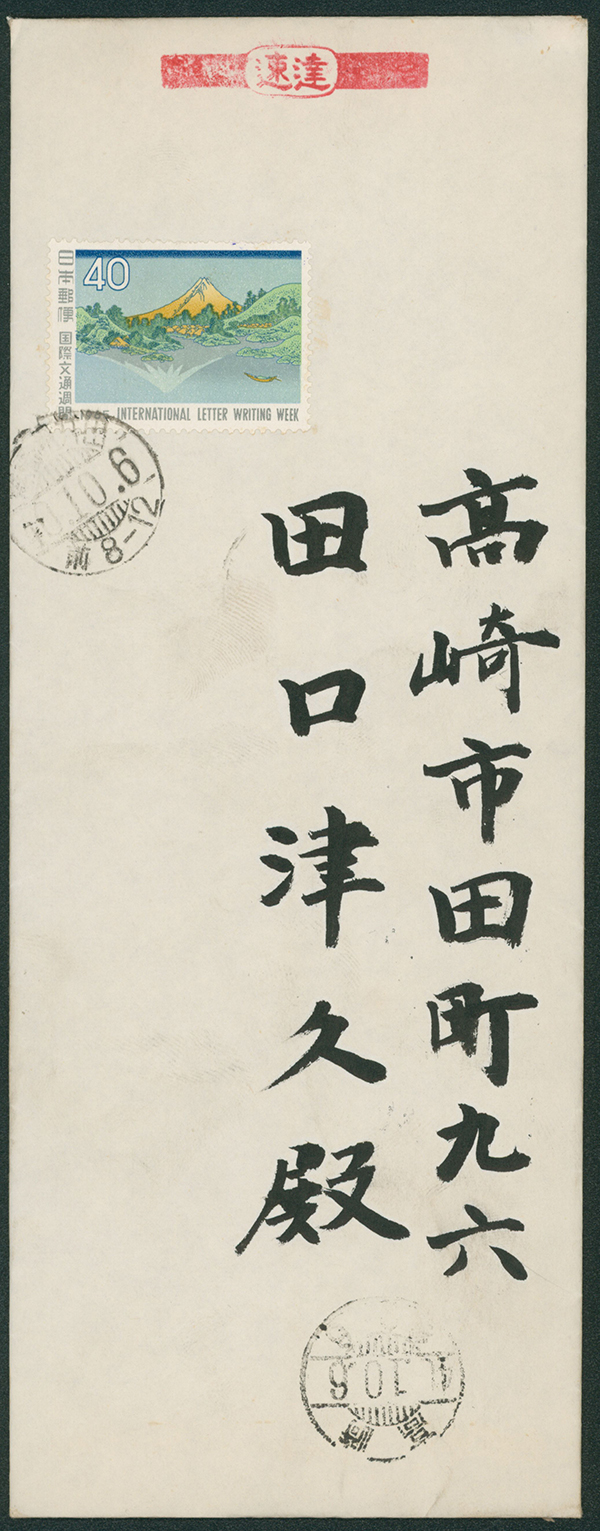 速達
40
日本郵便
国際文通週間
INTERNATIONAL LETTER WRITING WEEK
10.6
前8-12
高崎市田町九六
田口津久殿
41.10.6
高崎